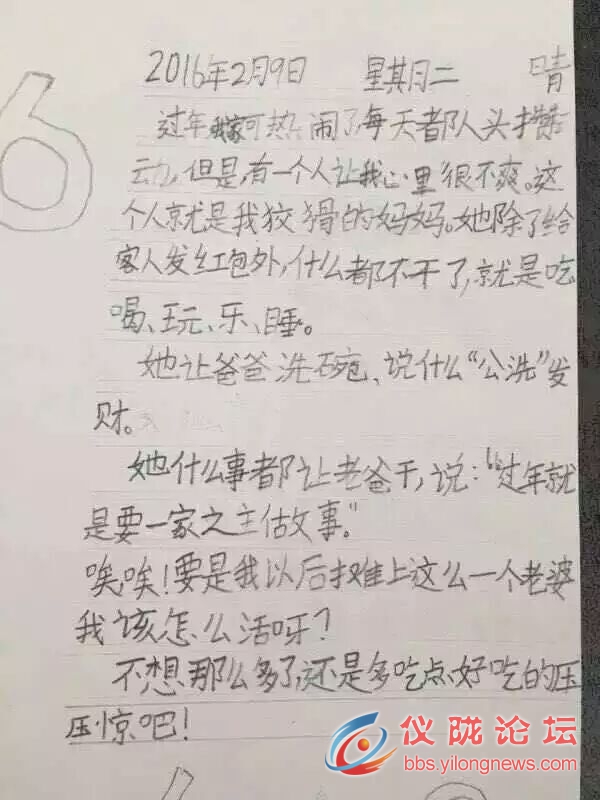 2016年2月9日 星期二 晴
过年我家可热闹了,每天都队头攒
动,但是,有一个人让我心里很不爽。这
个人就是我狡猾的妈妈。她除了给
客人发红包外,什么都不干了,就是吃
喝、玩、乐、睡。
她让爸爸洗碗、说什么“公洗”发
财。
她什么事都让老爸干,说:“过年就
是要一家之主估故事。”
唉,唉!要是我以后摊上这么一个老婆
我该怎么活呀?
不想那么多了,还是多吃点好吃的压
压惊吧!
仪陇论坛
bbs.yilongnews.com